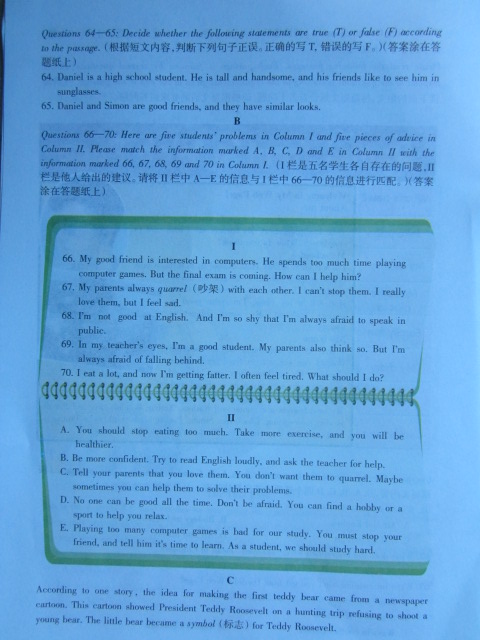 Questions 64—65: Decide whether the following statements are true (T) or false (F) according
to the passage. (根据短文内容,判断下列句子正误。正确的写 T, 错误的写 F。)(答案涂在答
题纸上)
64. Daniel is a high school student. He is tall and handsome, and his friends like to see him in
sunglasses.
65. Daniel and Simon are good friends, and they have similar looks.
B
Questions 66—70: Here are five students' problems in Column I and five pieces of advice in
Column II. Please match the information marked A, B, C, D and E in Column II with the
information marked 66, 67, 68, 69 and 70 in Column I. (I 栏是五名学生各自存在的问题,II
栏是他人给出的建议。请将 II 栏中 A—E 的信息与 I 栏中 66—70 的信息进行匹配。)(答案
涂在答题纸上)
I
66. My good friend is interested in computers. He spends too much time playing
computer games. But the final exam is coming. How can I help him?
67. My parents always quarrel (吵架) with each other. I can't stop them. I really
love them, but I feel sad.
68. I'm not good at English. And I'm so shy that I'm always afraid to speak in
public.
69. In my teacher's eyes, I'm a good student. My parents also think so. But I'm
always afraid of falling behind.
70. I eat a lot, and now I'm getting fatter. I often feel tired. What should I do?
II
A. You should stop eating too much. Take more exercise, and you will be
healthier.
B. Be more confident. Try to read English loudly, and ask the teacher for help.
C. Tell your parents that you love them. You don't want them to quarrel. Maybe
sometimes you can help them to solve their problems.
D. No one can be good all the time. Don't be afraid. You can find a hobby or a
sport to help you relax.
E. Playing too many computer games is bad for our study. You must stop your
friend, and tell him it's time to learn. As a student, we should study hard.
C
According to one story, the idea for making the first teddy bear came from a newspaper
cartoon. This cartoon showed President Teddy Roosevelt on a hunting trip refusing to shoot a
young bear. The little bear became a symbol (标志) for Teddy Roosevelt.